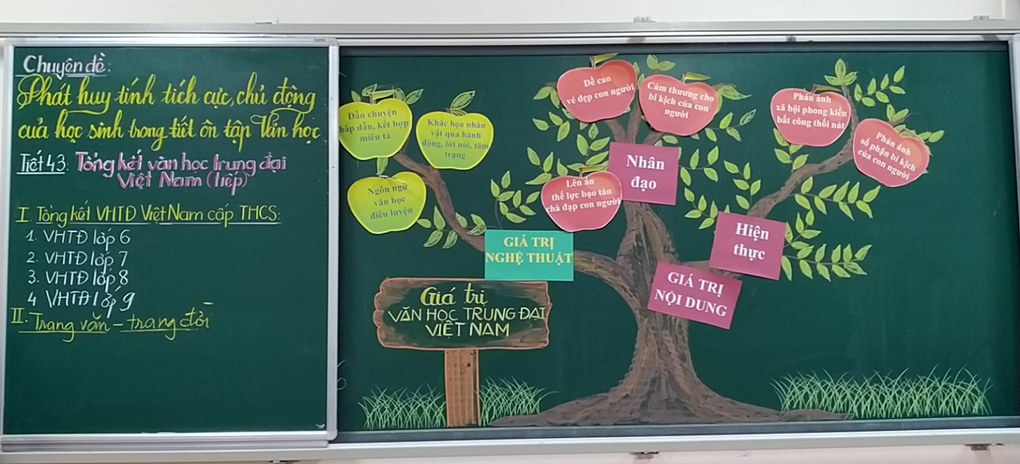 Chuyên đề:
Phát huy tính tích cực, chủ động
của học sinh trong tiết ôn tập Văn học
Tiết 43: Tổng kết văn học trung đại
Việt Nam (tiếp)
I. Tổng kết VHTĐ Việt Nam cấp THCS:
1. VHTĐ lớp 6
2. VHTĐ lớp 7
3. VHTĐ lớp 8
4 VHTĐ lớp 9
II. Trang văn - trang đời
Dẫn chuyện
hấp dẫn, kết hợp
miêu tả
Khắc họa nhân
vật qua hành
động, lời nói, tâm
trạng
Ngôn ngữ
văn học
điêu luyện
GIÁ TRỊ
NGHỆ THUẬT
Giá trị
VĂN HỌC TRUNG ĐẠI
VIỆT NAM
Đề cao
vẻ đẹp con người
Cảm thương cho
bi kịch của con
người
Lên án
thế lực bạo tàn
chà đạp con người
Nhân
đạo
Phản ánh
xã hội phong kiến
bất công thối nát
Phản ánh
số phận bi kịch
của con người
Hiện
thực
GIÁ TRỊ
NỘI DUNG